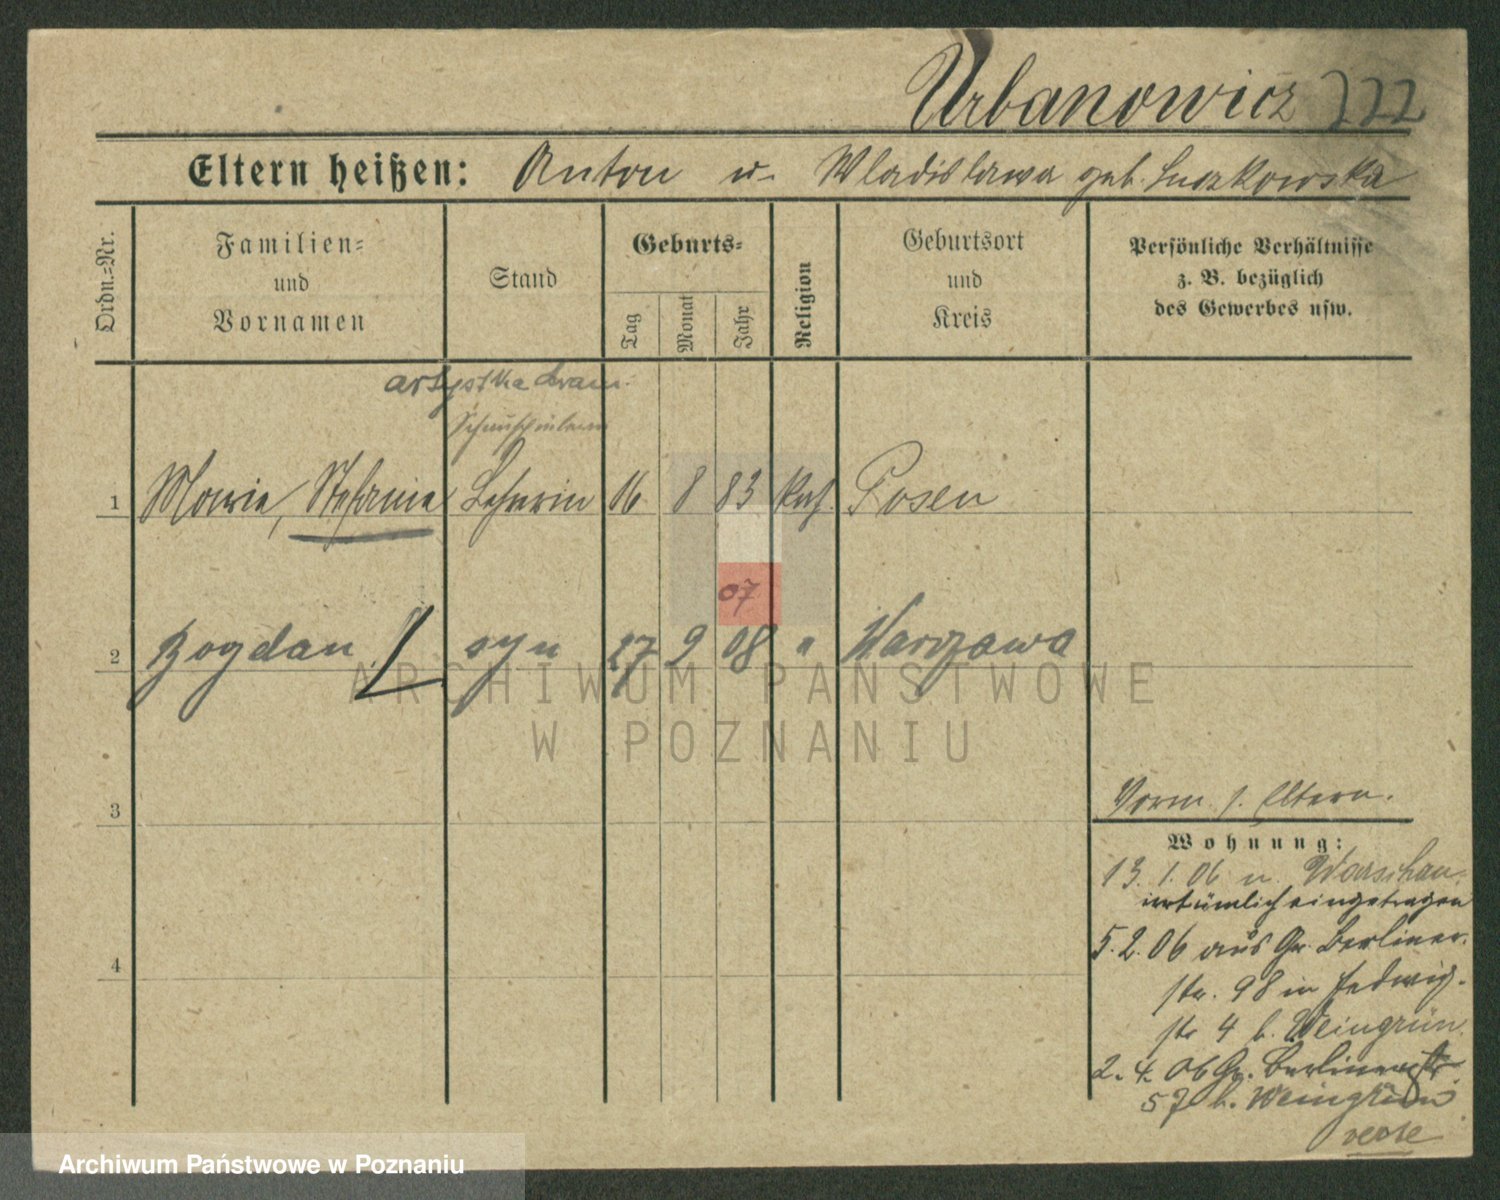 Urbanowicz 222
Eltern heißen: Anton u. Wladislawa geb. Luczkowska
Ordn.=Nr.
Familien=
und
Vornamen
Stand
Geburts=
Tag
Monat
Jahr
Religion
Geburtsort
und
Kreis
Persönliche Verhältnisse
z. B. bezüglich
des Gewerbes usw.
artystka dram.
1 Marie, Stefanie Lehrerin 16 8 83 kath. Posen
07
2 Bogdan syn 27 9 08 " Warszawa
3
4
Vorm. s. Eltern.
Wohnung:
13. 1. 06 n. Warschau.
irrtümlich eingetragen
5. 2. 06 aus Gr. Berliner-
str. 98 in Hedwig-
str 4 b. Weingrün
2. 4. 06 Gr. Berlinerstr.
57 b. Weingrün
verte
ARCHIWUM PAŃSTWOWE
W POZNANIU
Archiwum Państwowe w Poznaniu